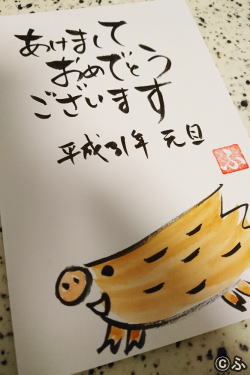 あけまして
おめでとう
ございます
平成31年 元旦
ふ
©ふ